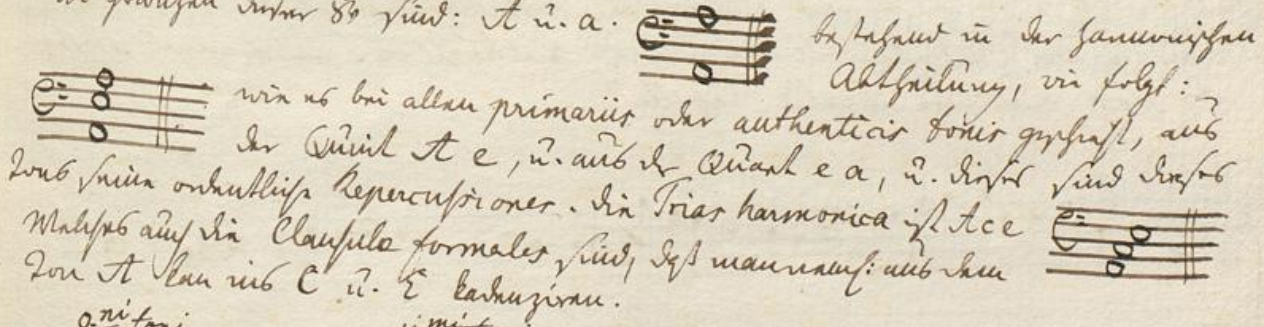 gräntzen dieser 8v sind: A u. a. bestehend in der harmonischen
Abtheilung, wie folgt:
wie es bei allen primariis oder authenticis tonis geschieht, aus
der Quint A e, u. aus der Quart e a, u. dieses sind dieses
Tons seine ordentliche Repercussiones. die Trias harmonica ist A c e
Welches auch die Clausulæ formales sind, dß man neml: aus dem
Ton A kan ins C u. E kadenziren.